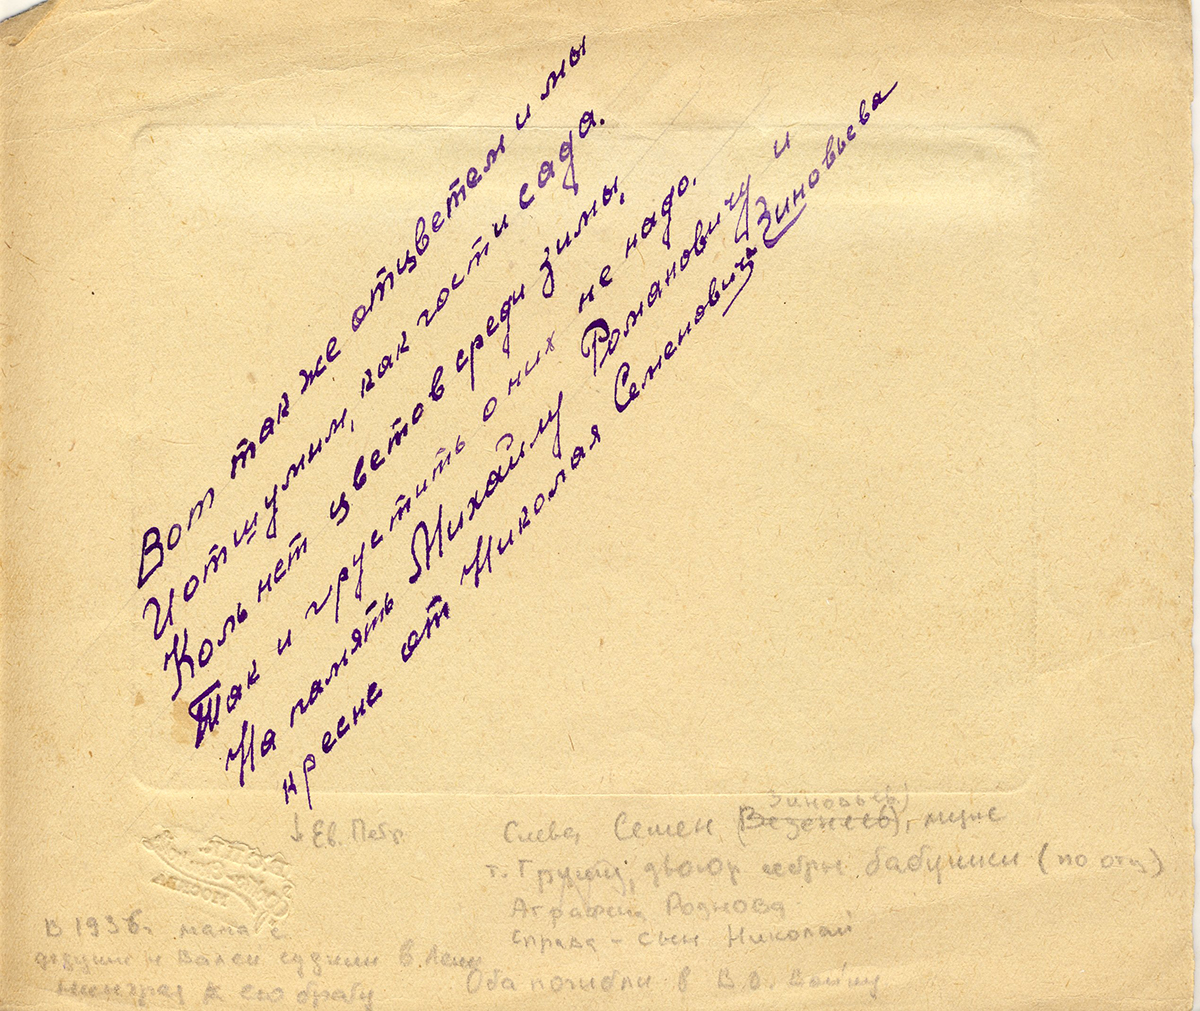 Вот так же отцветем и мы
И отшумим, как гости сада.
Коль нет цветов среди зимы,
Так и грустить о них не надо.
На память Михайлу Романовичу и
кресне от Николая Семеновича Зиновьева
↓ Ев. Петр.
Зиновьев)
Слева, Семен (Везенеев), муж
т. Груши, двоюр сестры бабушки (по отцу)
Аграфена Роднова
Справа – сын Николай
Оба погибли в В.О. Войну
В 1936г мама с
дедушкой Валей ездили в Лени
нинград к его брату
МОСКВА